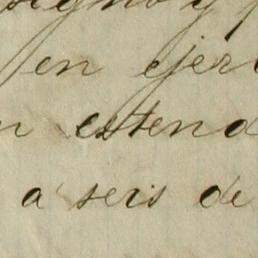 en ejer
estend
a seis de